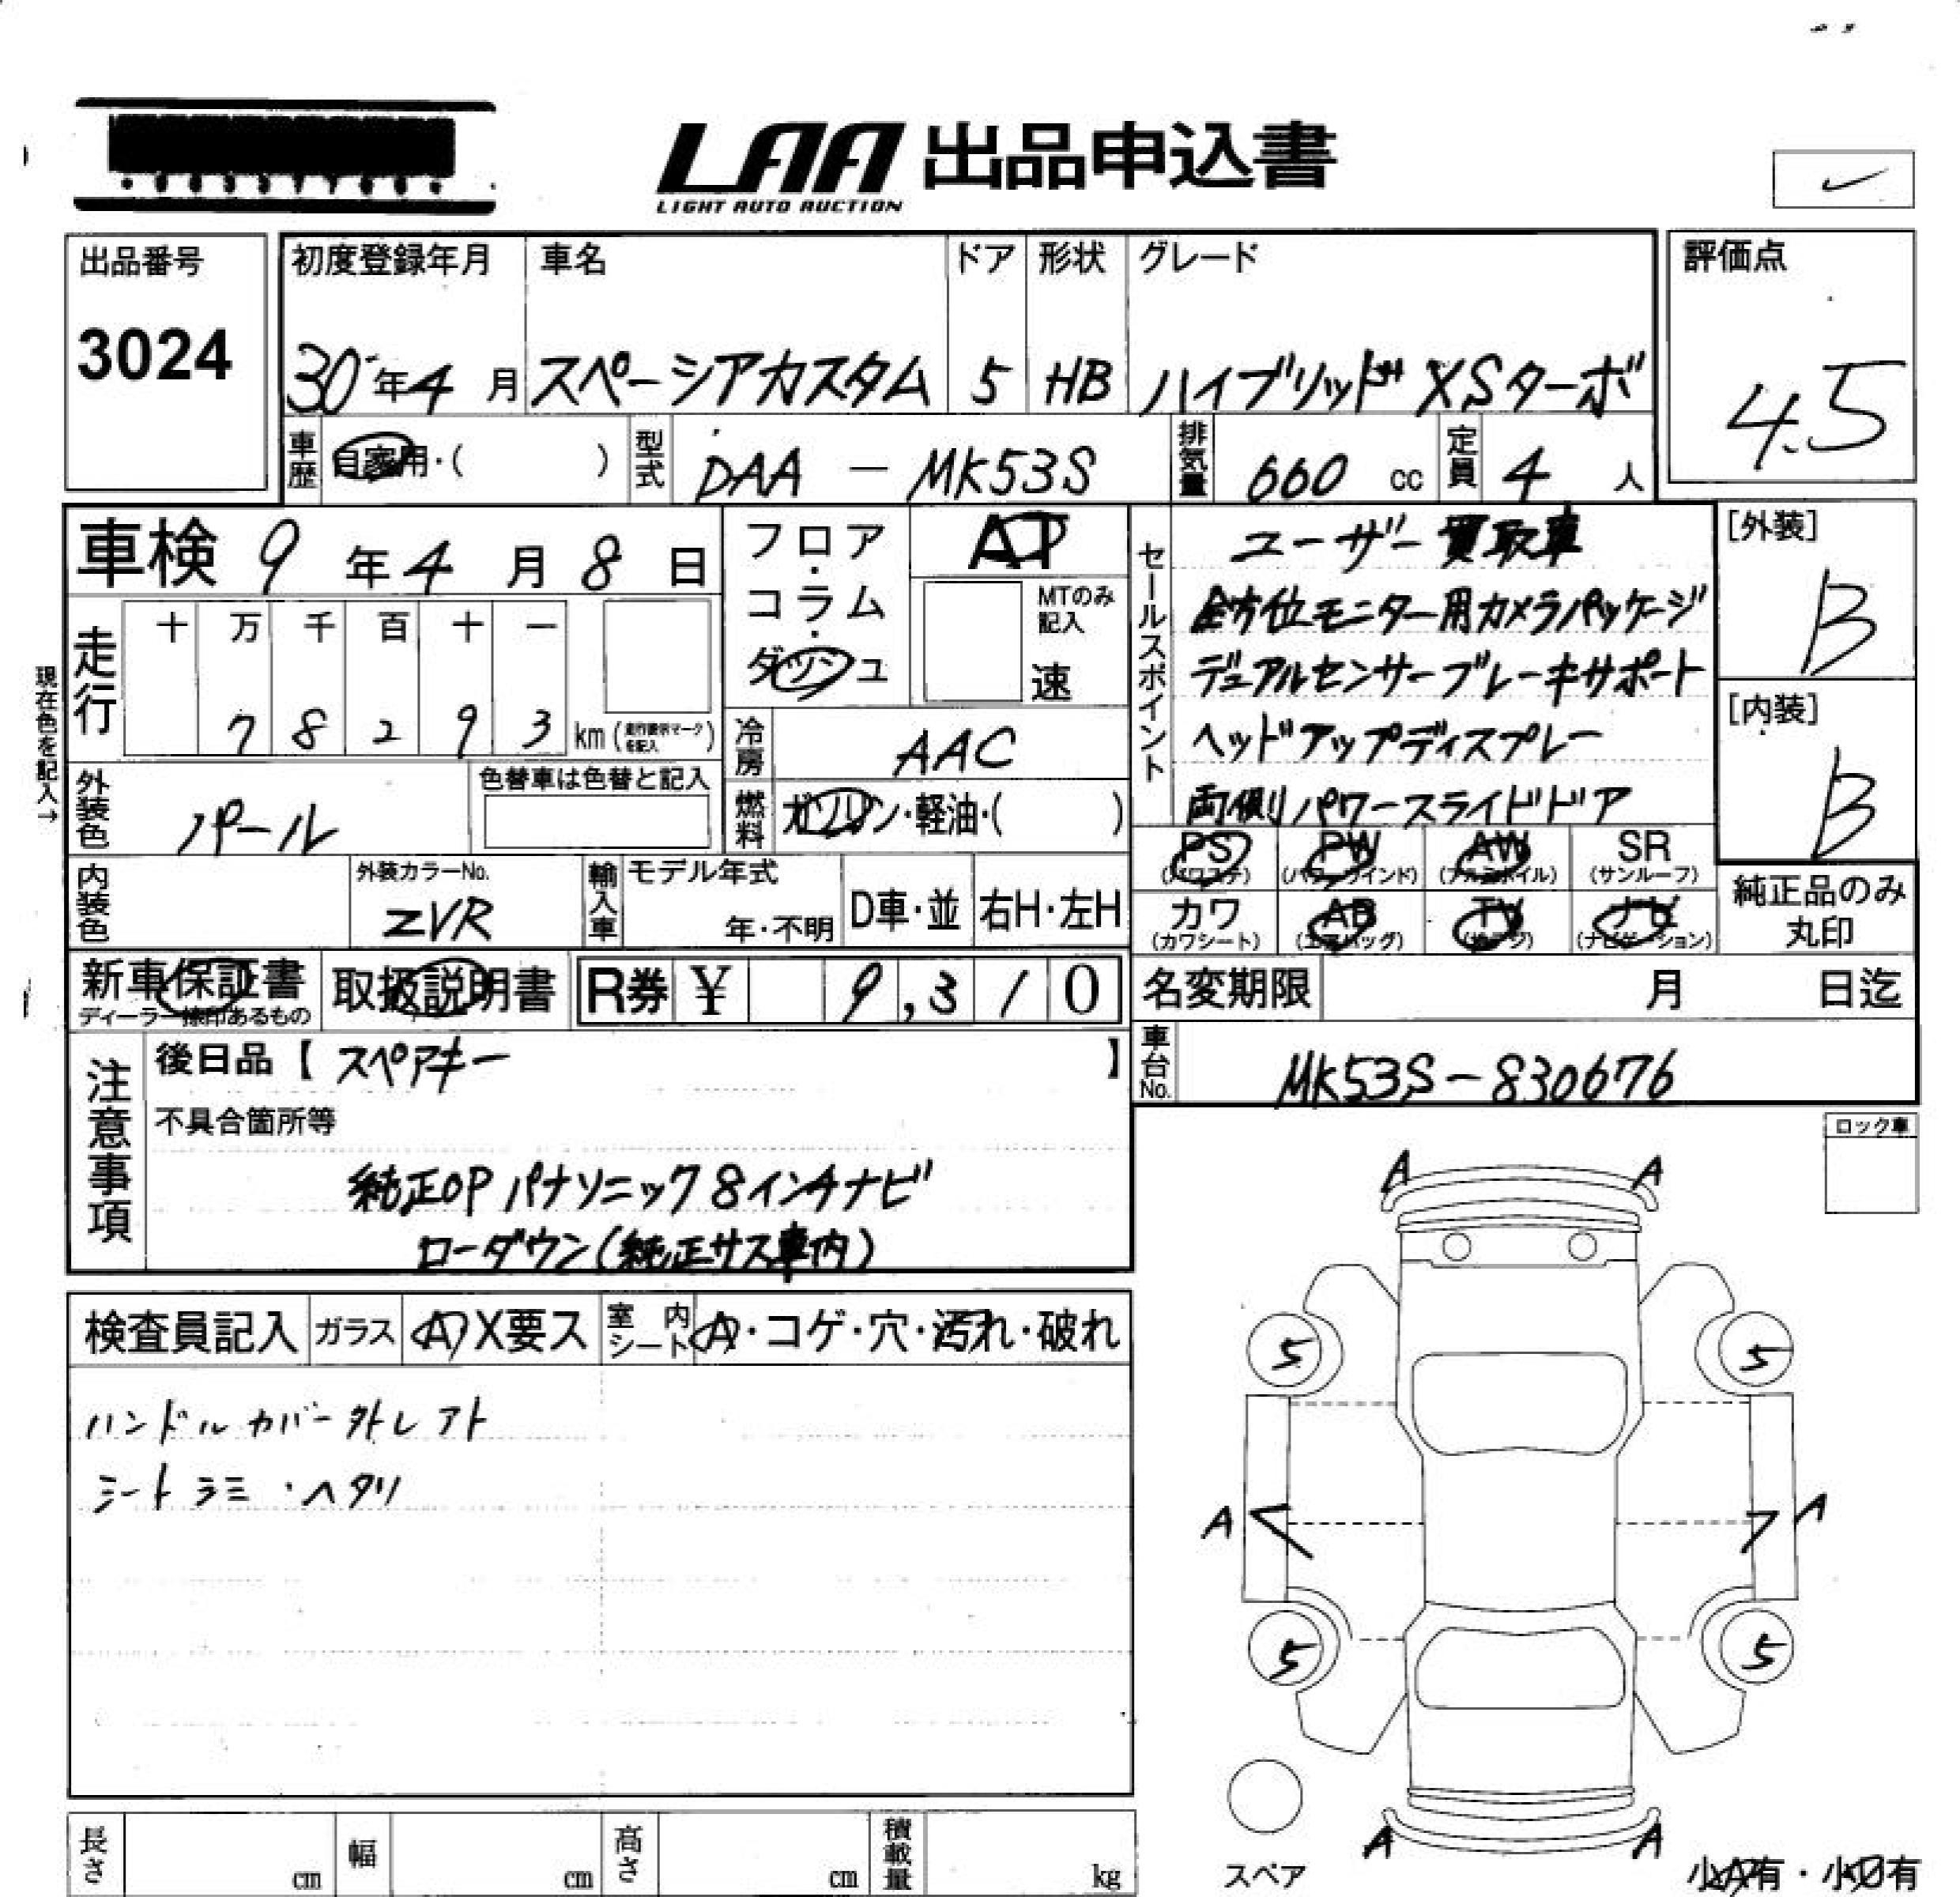 LAA 出品申込書
LIGHT AUTO AUCTION
出品番号
3024
初度登録年月 車名 ドア 形状 グレード
30年4月 スペーシアカスタム 5 HB ハイブリッド XSターボ
評価点
4.5
車歴 自家用・( ) 型式 DAA － MK53S 排気量 660 cc 定員 4 人
車検 9 年 4 月 8 日
フロア・コラム・ダッシュ
AT
MTのみ記入
速
現在色を記入→
走行 十 万 千 百 十 一
7 8 2 9 3 km
冷房 AAC
外装色 パール
色替車は色替と記入
燃料 ガソリン・軽油・( )
内装色
外装カラーNo.
ZVR
輸入車 モデル年式
年・不明 D車・並 右H・左H
セールスポイント
ユーザー買取車
全方位モニター用カメラパッケージ
デュアルセンサーブレーキサポート
ヘッドアップディスプレー
両側パワースライドドア
[外装]
B
[内装]
B
PS PW AW SR
(パワステ) (パワーウインド) (アルミホイル) (サンルーフ)
カワ AB TV ナビ
(カワシート) (エアバッグ) (地デジ) (ナビゲーション)
純正品のみ
丸印
新車保証書 取扱説明書 R券 ¥ 9,310
ディーラー捺印あるもの
名変期限 月 日迄
車台No. MK53S-830676
注意事項
後日品【 スペアキー 】
不具合箇所等
純正OP パナソニック8インチナビ
ローダウン(純正サス車内)
ロック車
検査員記入 ガラス A X要ス 室内シート A・コゲ・穴・汚れ・破れ
ハンドルカバー外レアト
シートシミ・ヘタリ
A A
5 5
A A
5 5
A A
スペア
小A有・小U有
長さ cm 幅 cm 高さ cm 積載量 kg